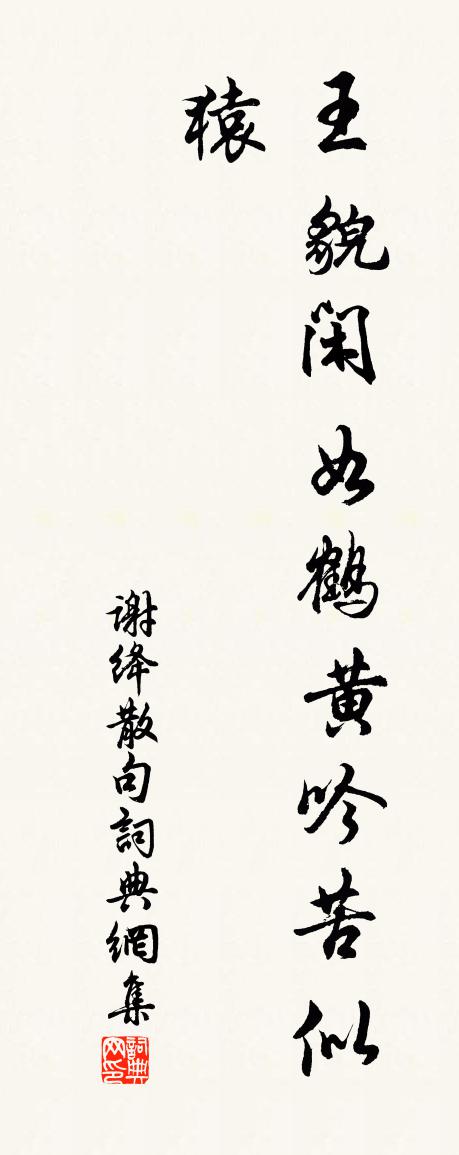 王貌閑如鶴黄吟苦似
猿
谢绛散句詞典網集
詞典网印